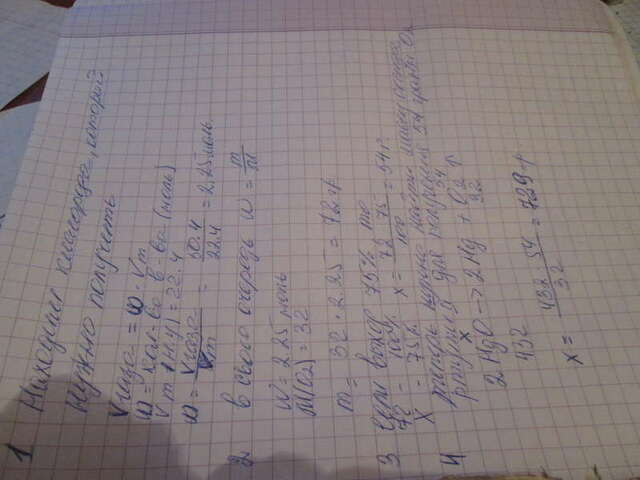 1 Находим кислород, который
нужно получить
Vгаза = ω · Vm
ω = кол-во в-ва (моль)
Vm (н.у) = 22.4
ω = Vгаза / Vm = 50.4 / 22.4 = 2,25 моль
2 в свою очередь ω = m / M
ω = 2.25 моль
M(O2) = 32
m = 32 · 2.25 = 72 гр
3 если выход 75% то
72 - 100%
x - 75% x = 72 · 75 / 100 = 54 г.
4 теперь нужно найти массу оксида
ртути для получения 54 грамма O2
x 54
2 HgO → 2 Hg + O2 г
432 32
x = 432 · 54 / 32 = 729 г.